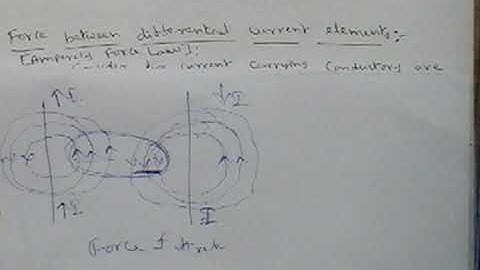 Force between differential current elements:-
[Amperes Force Law]:
two current carrying conductors are
↑I
↓I
↑I
I
Force